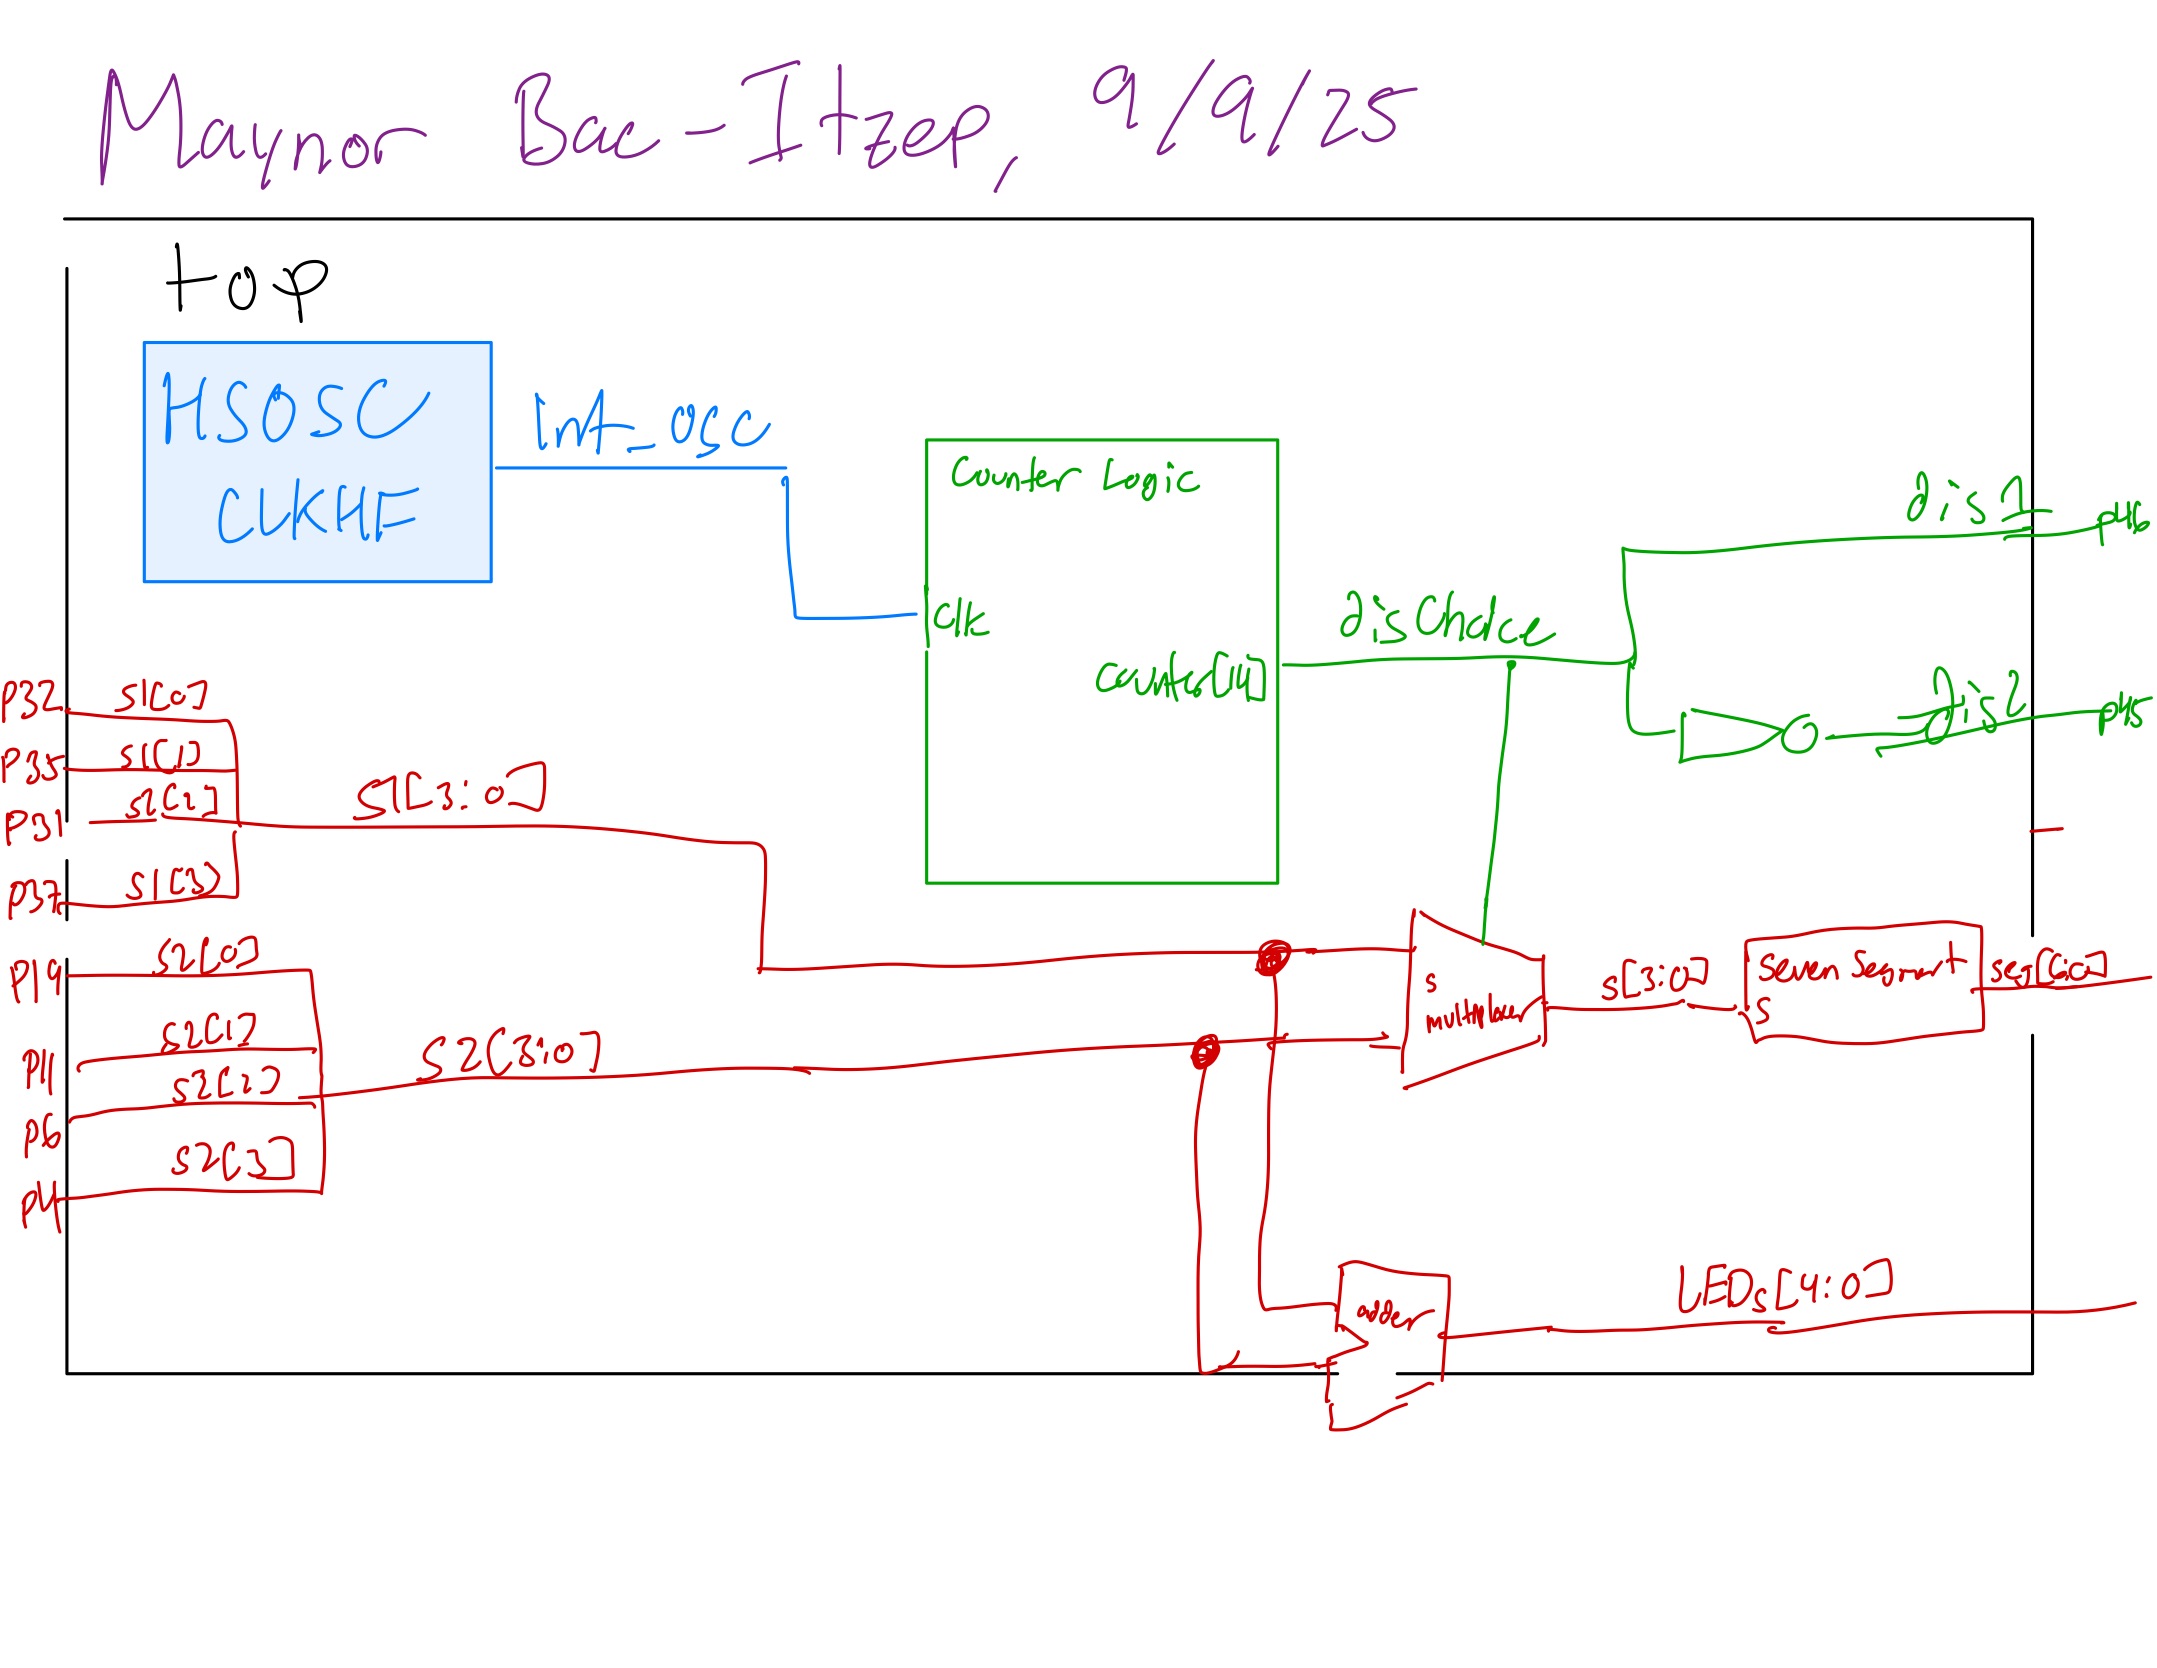 Maynor Bac-Itzep, 9/9/25
top
HSOSC
CLKHF
int_osc
Counter Logic
clk
counter[11]
disChoice
dis1
p46
dis2
p45
P32 s1[0]
P35 s1[1]
P31 s1[2]
P37 s1[3]
s1[3:0]
P19 s2[0]
P11 s2[1]
P6 s2[2]
P4 s2[3]
s2[3:0]
s
s[3:0]
seven segment
s
adder
LEDs[4:0]